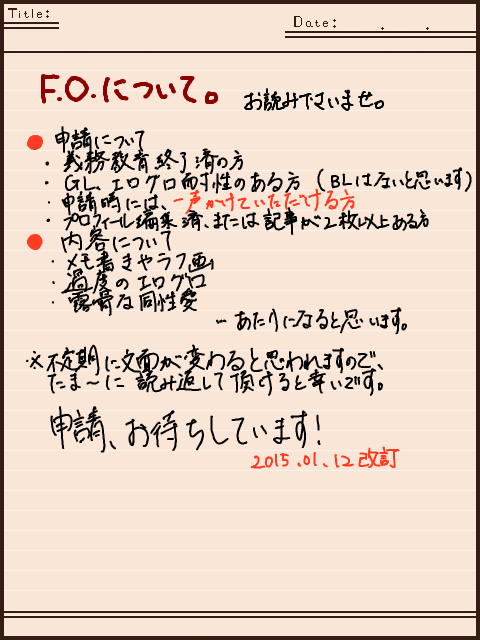 Title:
Date: . .
F.O.について。 お読み下さいませ。
● 申請について
・義務教育終了済の方
・GL、エログロ耐性のある方（BLはないと思います）
・申請時には、一声かけていただける方
・プロフィール編集済、または記事が2枚以上ある方
● 内容について
・メモ書きやラフ画
・過度のエログロ
・露骨な同性愛
…あたりになると思います。
※不定期に文面が変わると思われますので、
たま〜に読み返して頂けると幸いです。
申請、お待ちしています!
2015.01.12 改訂